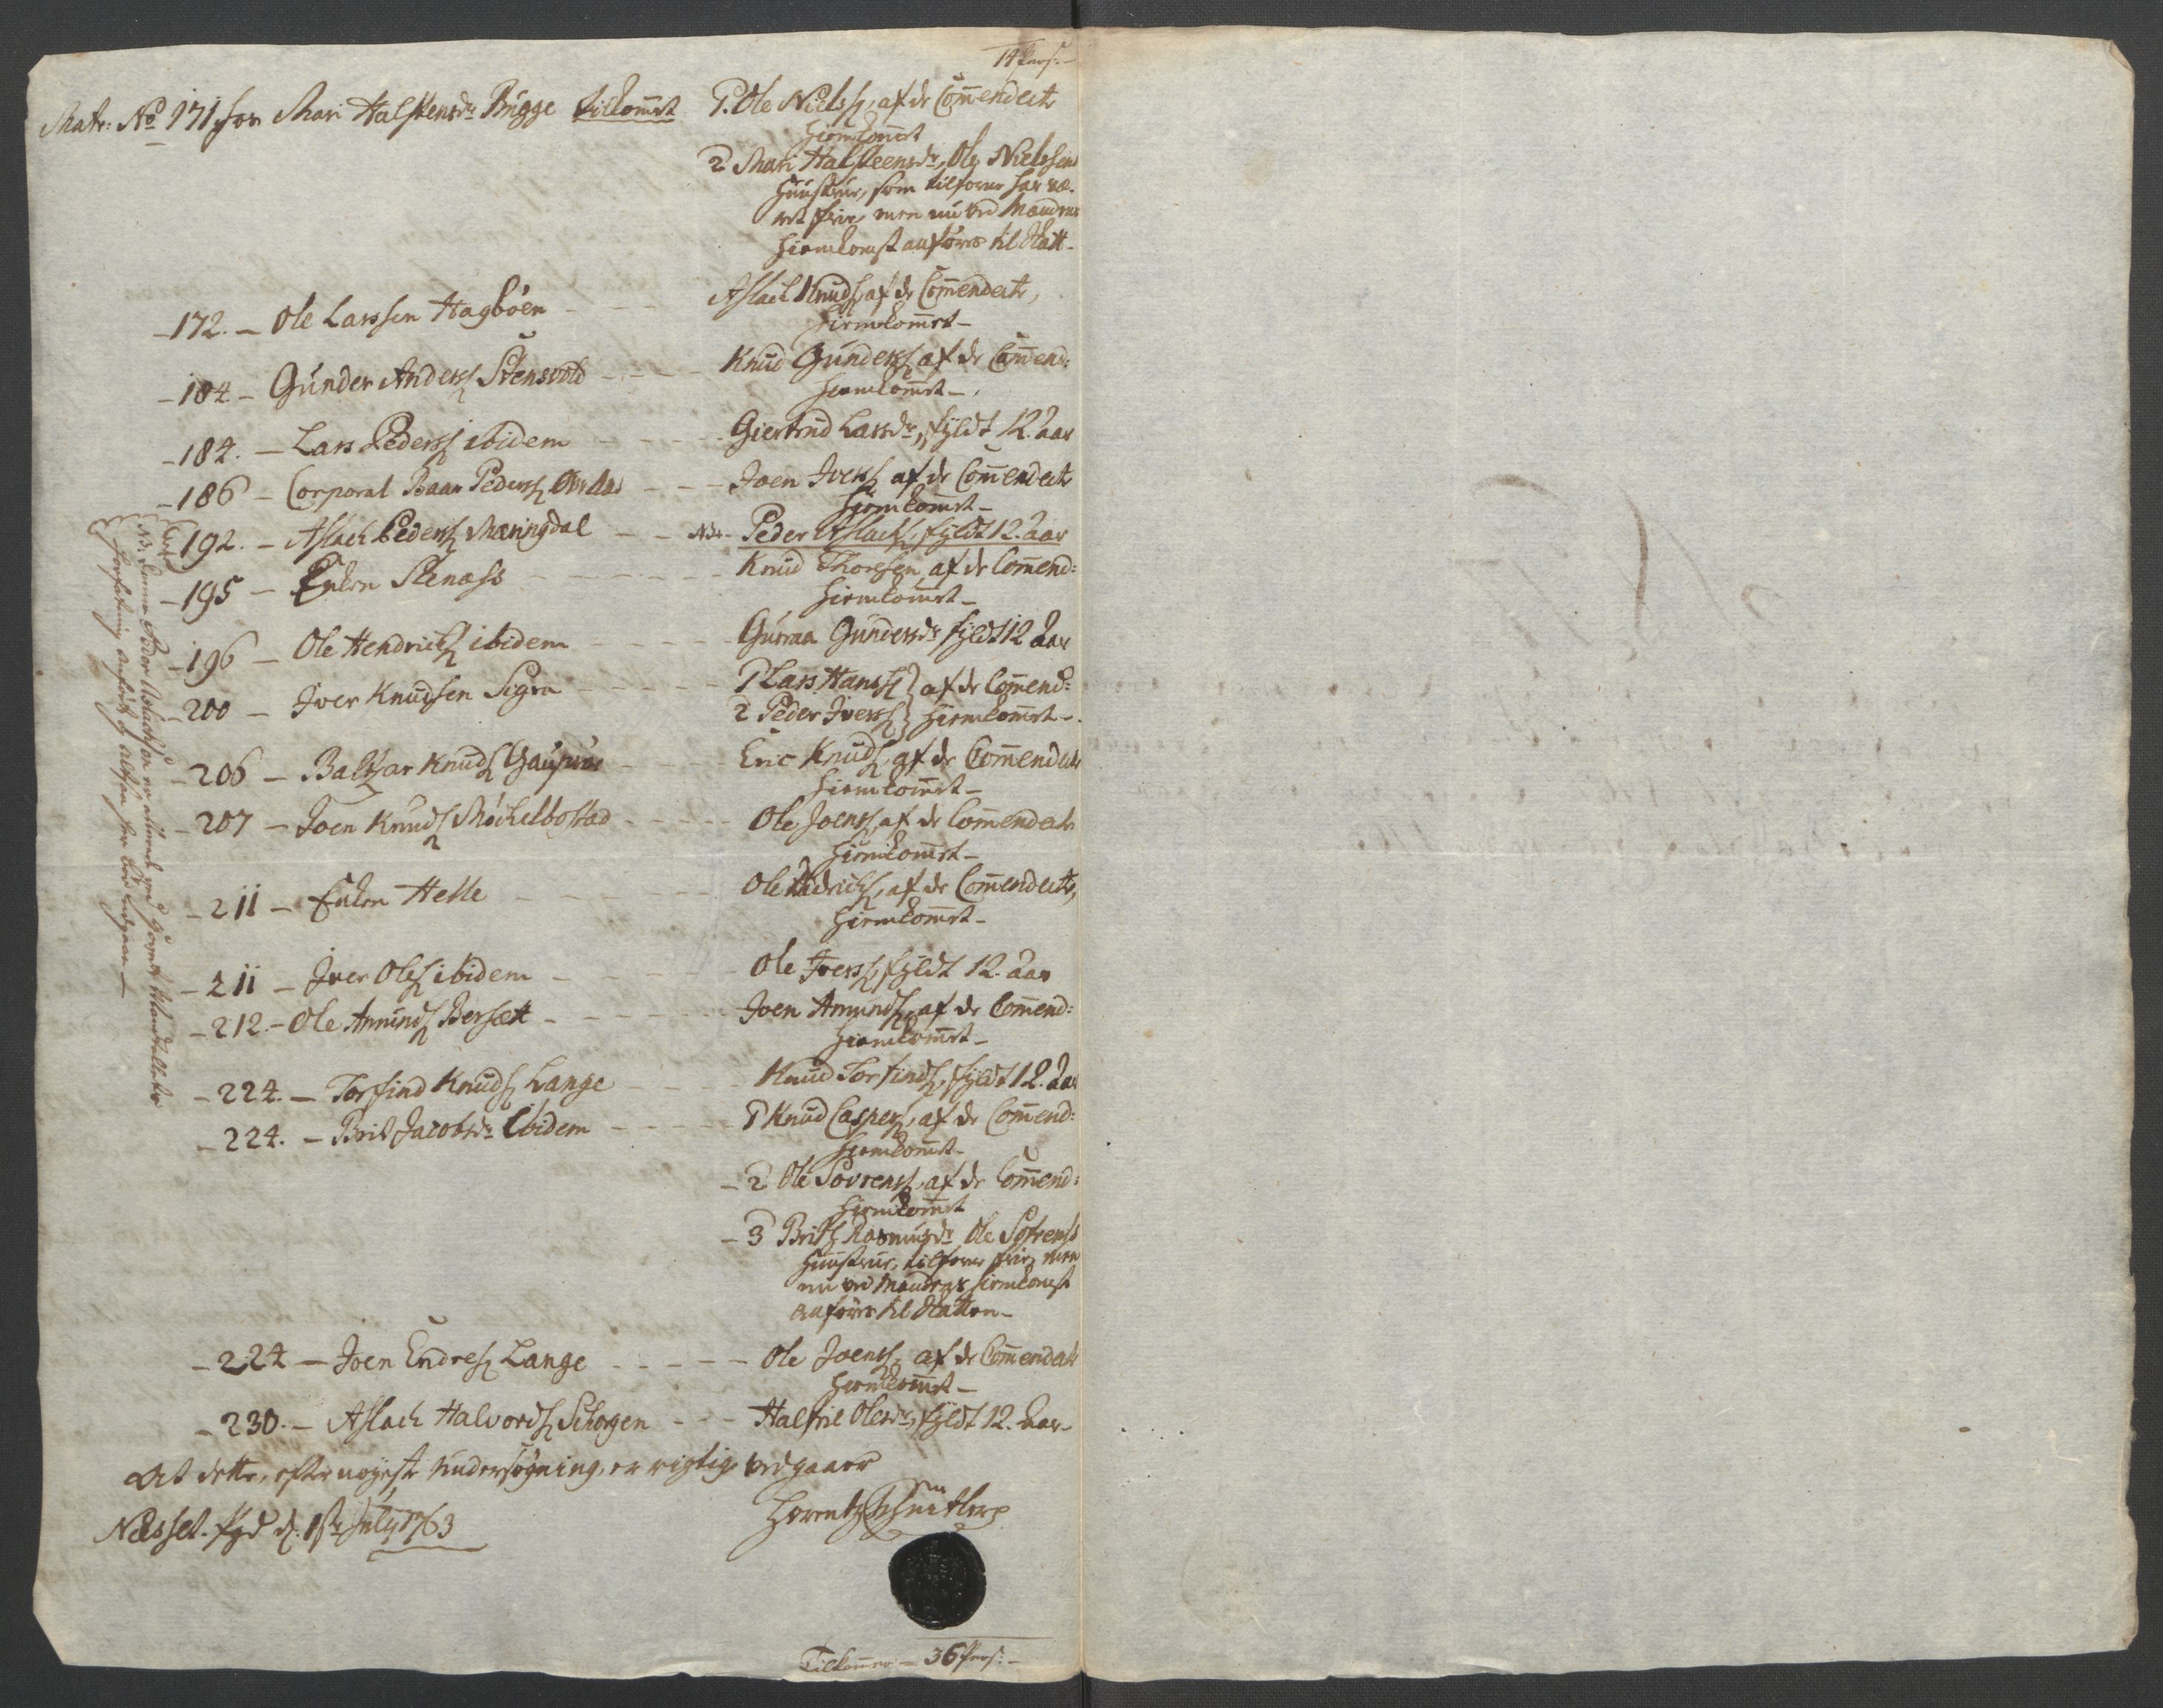 14 Pers: -
Matr: No 171 hos Mari Halstensdr Bugge tilkommet 1. Ole Nielss, af de Commenderte
hiemkommet
2 Mari Halsteensdr, Ole Nielsens
Huustrue, som tilforne har væ-
ret frie, men nu ved Mandens
hiemkomst anføres til Skatt -
- 172. - Ole Larssen Hagbøen - - - Aslach Knuds, af de Commenderte,
hiemkommet -
- 184 - Gunder Anders Stensvold - - - - Knud Gunders, af de Commend:
hiemkommet -
- 184. - Lars Peders ibidem - - - - Giertrud Larsdr, fyldt 12. Aar
- 186 - Corporal Baar Peders - - - Joen Ivers af de Commenderte
hiemkommet -
- 192. - Aslach Peders Meringdal - - NB. Peder Aslachs, fyldt 12. Aar
- 195 - Enken Stenæss - - - - - - Knud Thoresen, af de Commend:
hiemkommet -
- 196 - Ole Hendrichs ibidem - - - - Guraa Gundersdr fyldt 12 Aar
- 200 - Iver Knudsen Sigra - - - - - 1 Lars Hanss } af de Commend:
2 Peder Ivers } hiemkommet -
- 206 - Baltzar Knuds - - - - Eric Knuds, af de Commenderte
hiemkommet -
- 207 - Joen Knuds Møchelbostad - - - - - Ole Joens, af de Commenderte
hiemkommet -
- 211 - Enken Helle - - - - - Ole, af de Commenderte,
hiemkommet -
- 211 - Iver Oles ibidem - - - - Ole Ivers, fyldt 12. Aar
- 212. - Ole Amunds Bersætt - - - - - Joen Amunds, af de Commend:
hiemkommet -
- 224. - Torfind Knuds Lange - - - - Knud Torfinds, fyldt 12. Aar
- 224. - Brit Jacobsdr Ibidem - - - - 1 Knud Caspers, af de Commend:
hiemkommet -
- 2 Ole Sovrens, af de Commend:
hiemkommet
- 3 Brit Rasmusdr Ole Sofrens
Huustrue, tilforne frie, men
nu ved Mandens hiemkomst
anføres til Skatten -
- 224 - Joen Endres Lange - - - - - Ole Joens, af de Commenderte
hiemkommet -
- 230. - Aslach Halvords Schorgen - - - Halfrie Olesdr, fyldt 12. Aar -
At dette, efter nøyeste Undersøgning, er rigtig, vedgaaer
Næsset Pgd d: 1ste July 1763
Tilkommer - 36 Pers: -
NB. denne Peder Aslachsen er allerede ved Mandtallets
forfatning anført, og altsaa her bør udgaae -